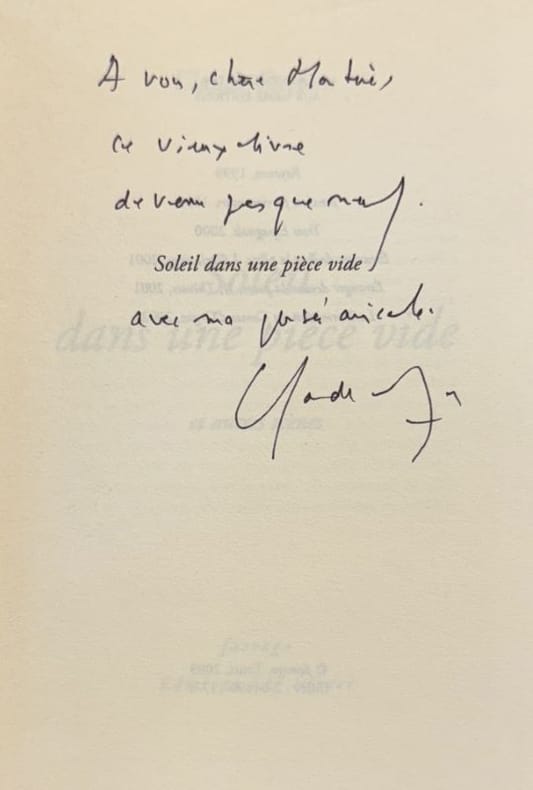 A vous, chère
ce vieux livre
devenu presque neuf.
Soleil dans une pièce vide
avec ma pensée amicale.
Claude